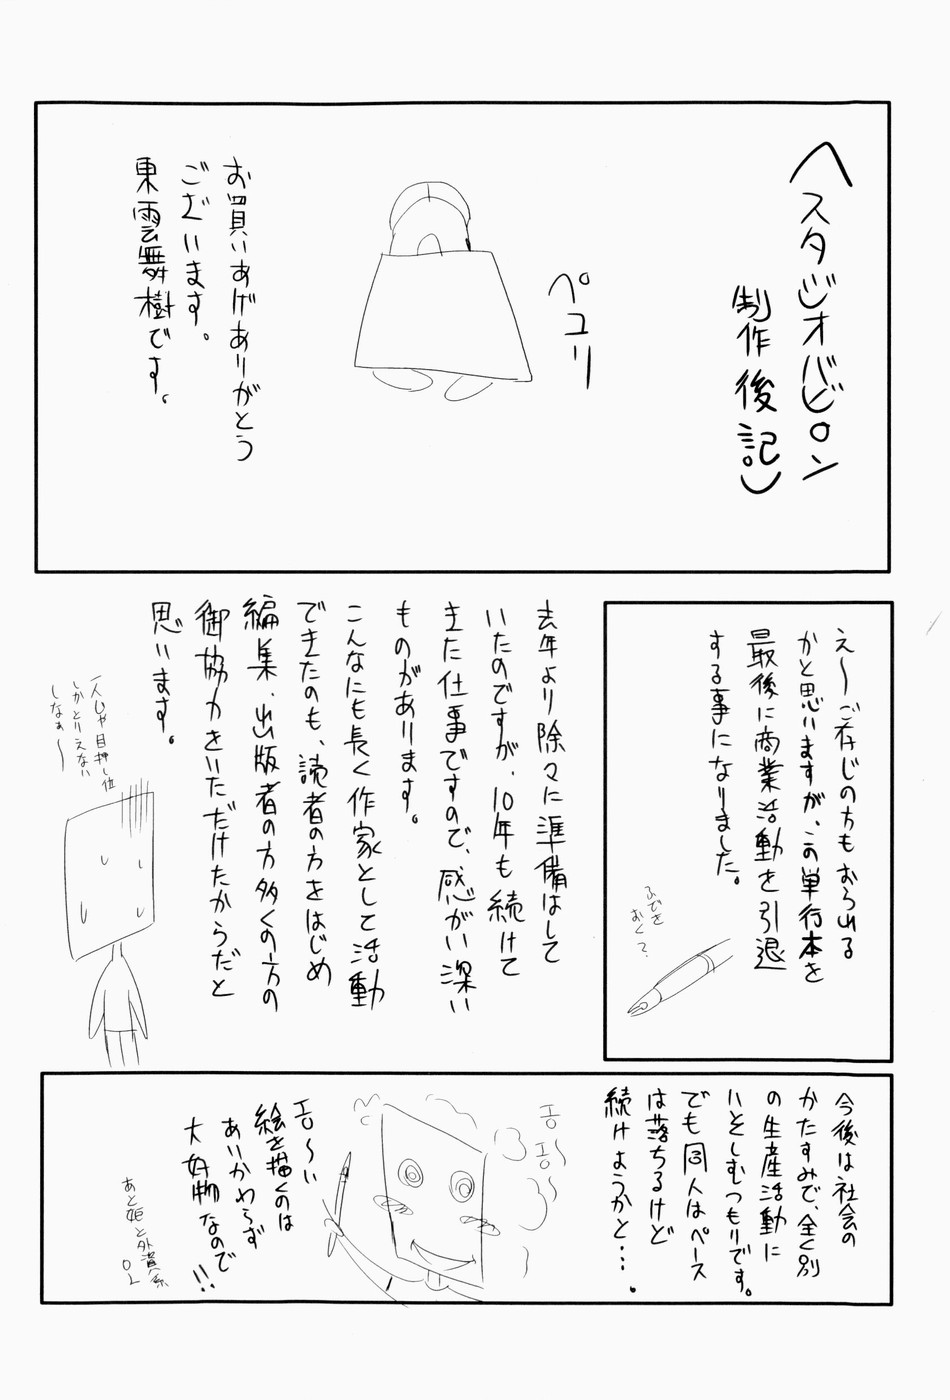 へスタジオバビロン
制作後記)
ペコリ
お買いあげありがとう
ございます。
東雲舞樹です。
え〜ご存じの方もおられる
かと思いますが、この単行本を
最後に商業活動を引退
する事になりました。
ふでを
おく?
去年より除々に準備はして
いたのですが、10年も続けて
きた仕事ですので、感がい深い
ものがあります。
こんなにも長く作家として活動
できたのも、読者の方をはじめ
編集、出版者の方多くの方の
御協力をいただけたからだと
思います。
一人じゃ目押し位
しかとりえない
しなぁ〜
今後は社会の
かたすみで、全く別
の生産活動に
いとそしむつもりです。
でも同人はペース
は落ちるけど
続けようかと…。
エロ〜
エロ〜い
絵を描くのは
あいかわらず
大好物なので
!!
あと姫と外資系
OL